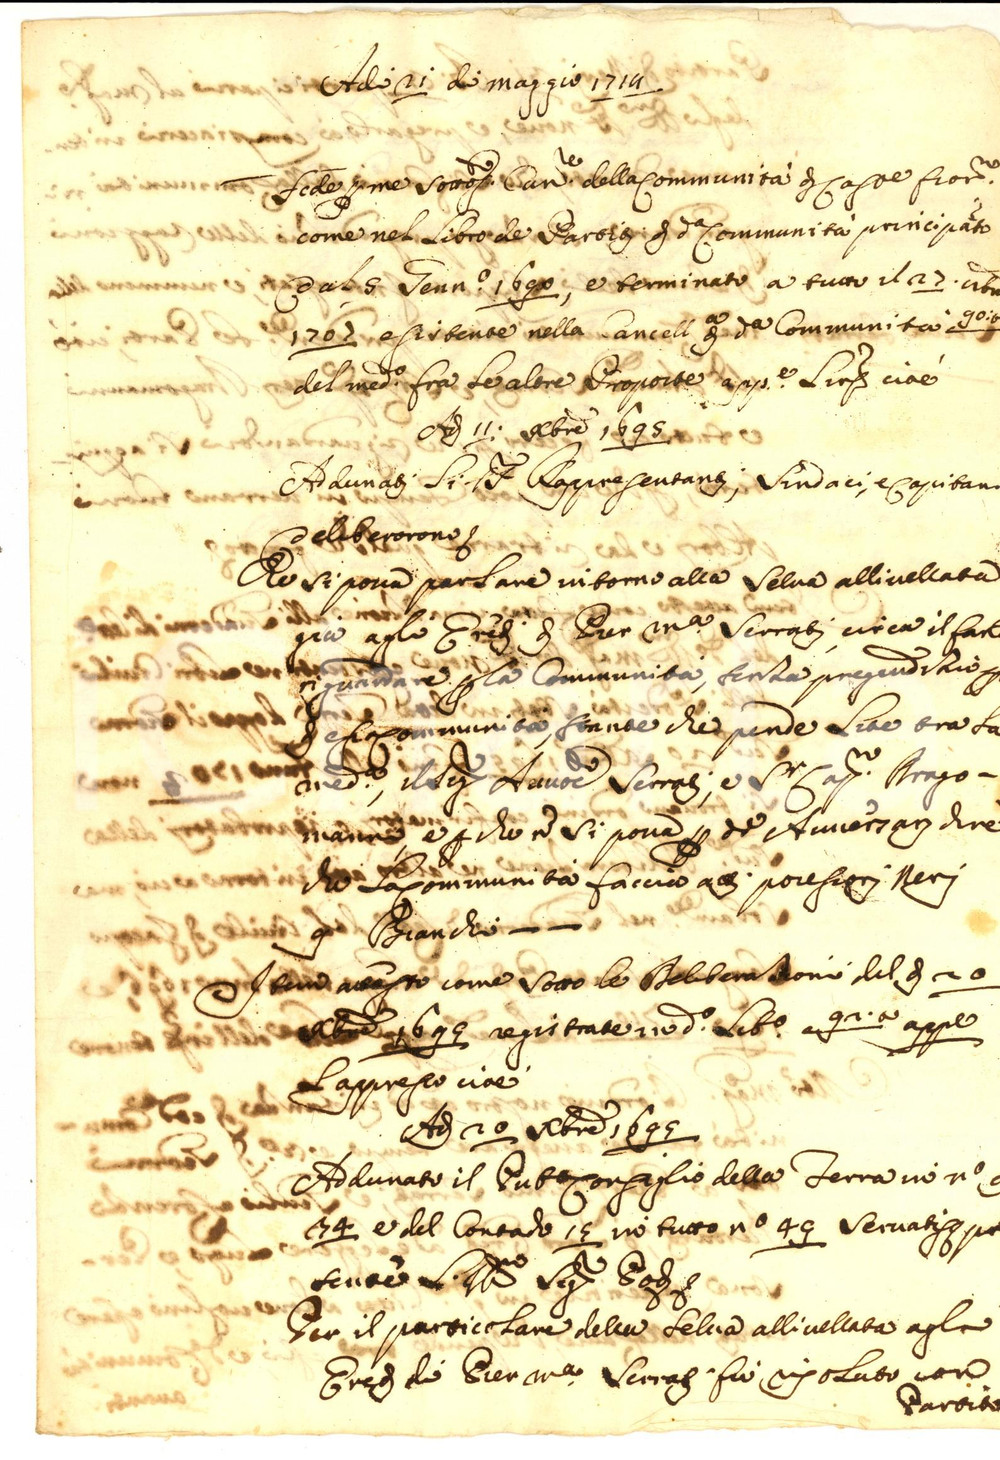 Adi 21 di maggio 1714
Fede p me sotto Can.re della Communità di Castel Fior.no
come nel Libro de Partiti di d.a Communità principiato
dal 5 Genn.o 1690, e terminato a tutto il 27
1707 esistente nella Cancell.a di d.a Communità
del med.o fra le altre Proposte app.e cioè
Ad 11 Xbre 1695
Adunati li Rappresentanti, Sindaci, e Capitani
deliberorono
Che si possa parlare intorno alla Selva allivellata
già agli Eredi di Pier M.a Serrati, circa il fatto
riguardare p la Communità, senza pregiudizio
di essa Communità, stante che pende Lite tra la
med.a, il Sig.r Avvoc. Serrati, e S.r Cap.no Brago-
manni, e p che n si possa p d.e Avversarj dire
che la Communità faccia atti possessorj Neri
Bianchi
Item attesto come sotto le Deliberazioni del di 20
Xbre 1699 registrate in d.o Lib.o a 92 app.e
L'appresso cioè
Ad 20 Xbre 1699
Adunato il Pub.o Consiglio della Terra in n.o
34 e del Contado 15 in tutto n.o 49 Servatis
Ill.mo Sig.r Pod.
Per il particolare della Selva allivellata agli
Eredi di Pier M.a Serrati fù risoluto con
Partito